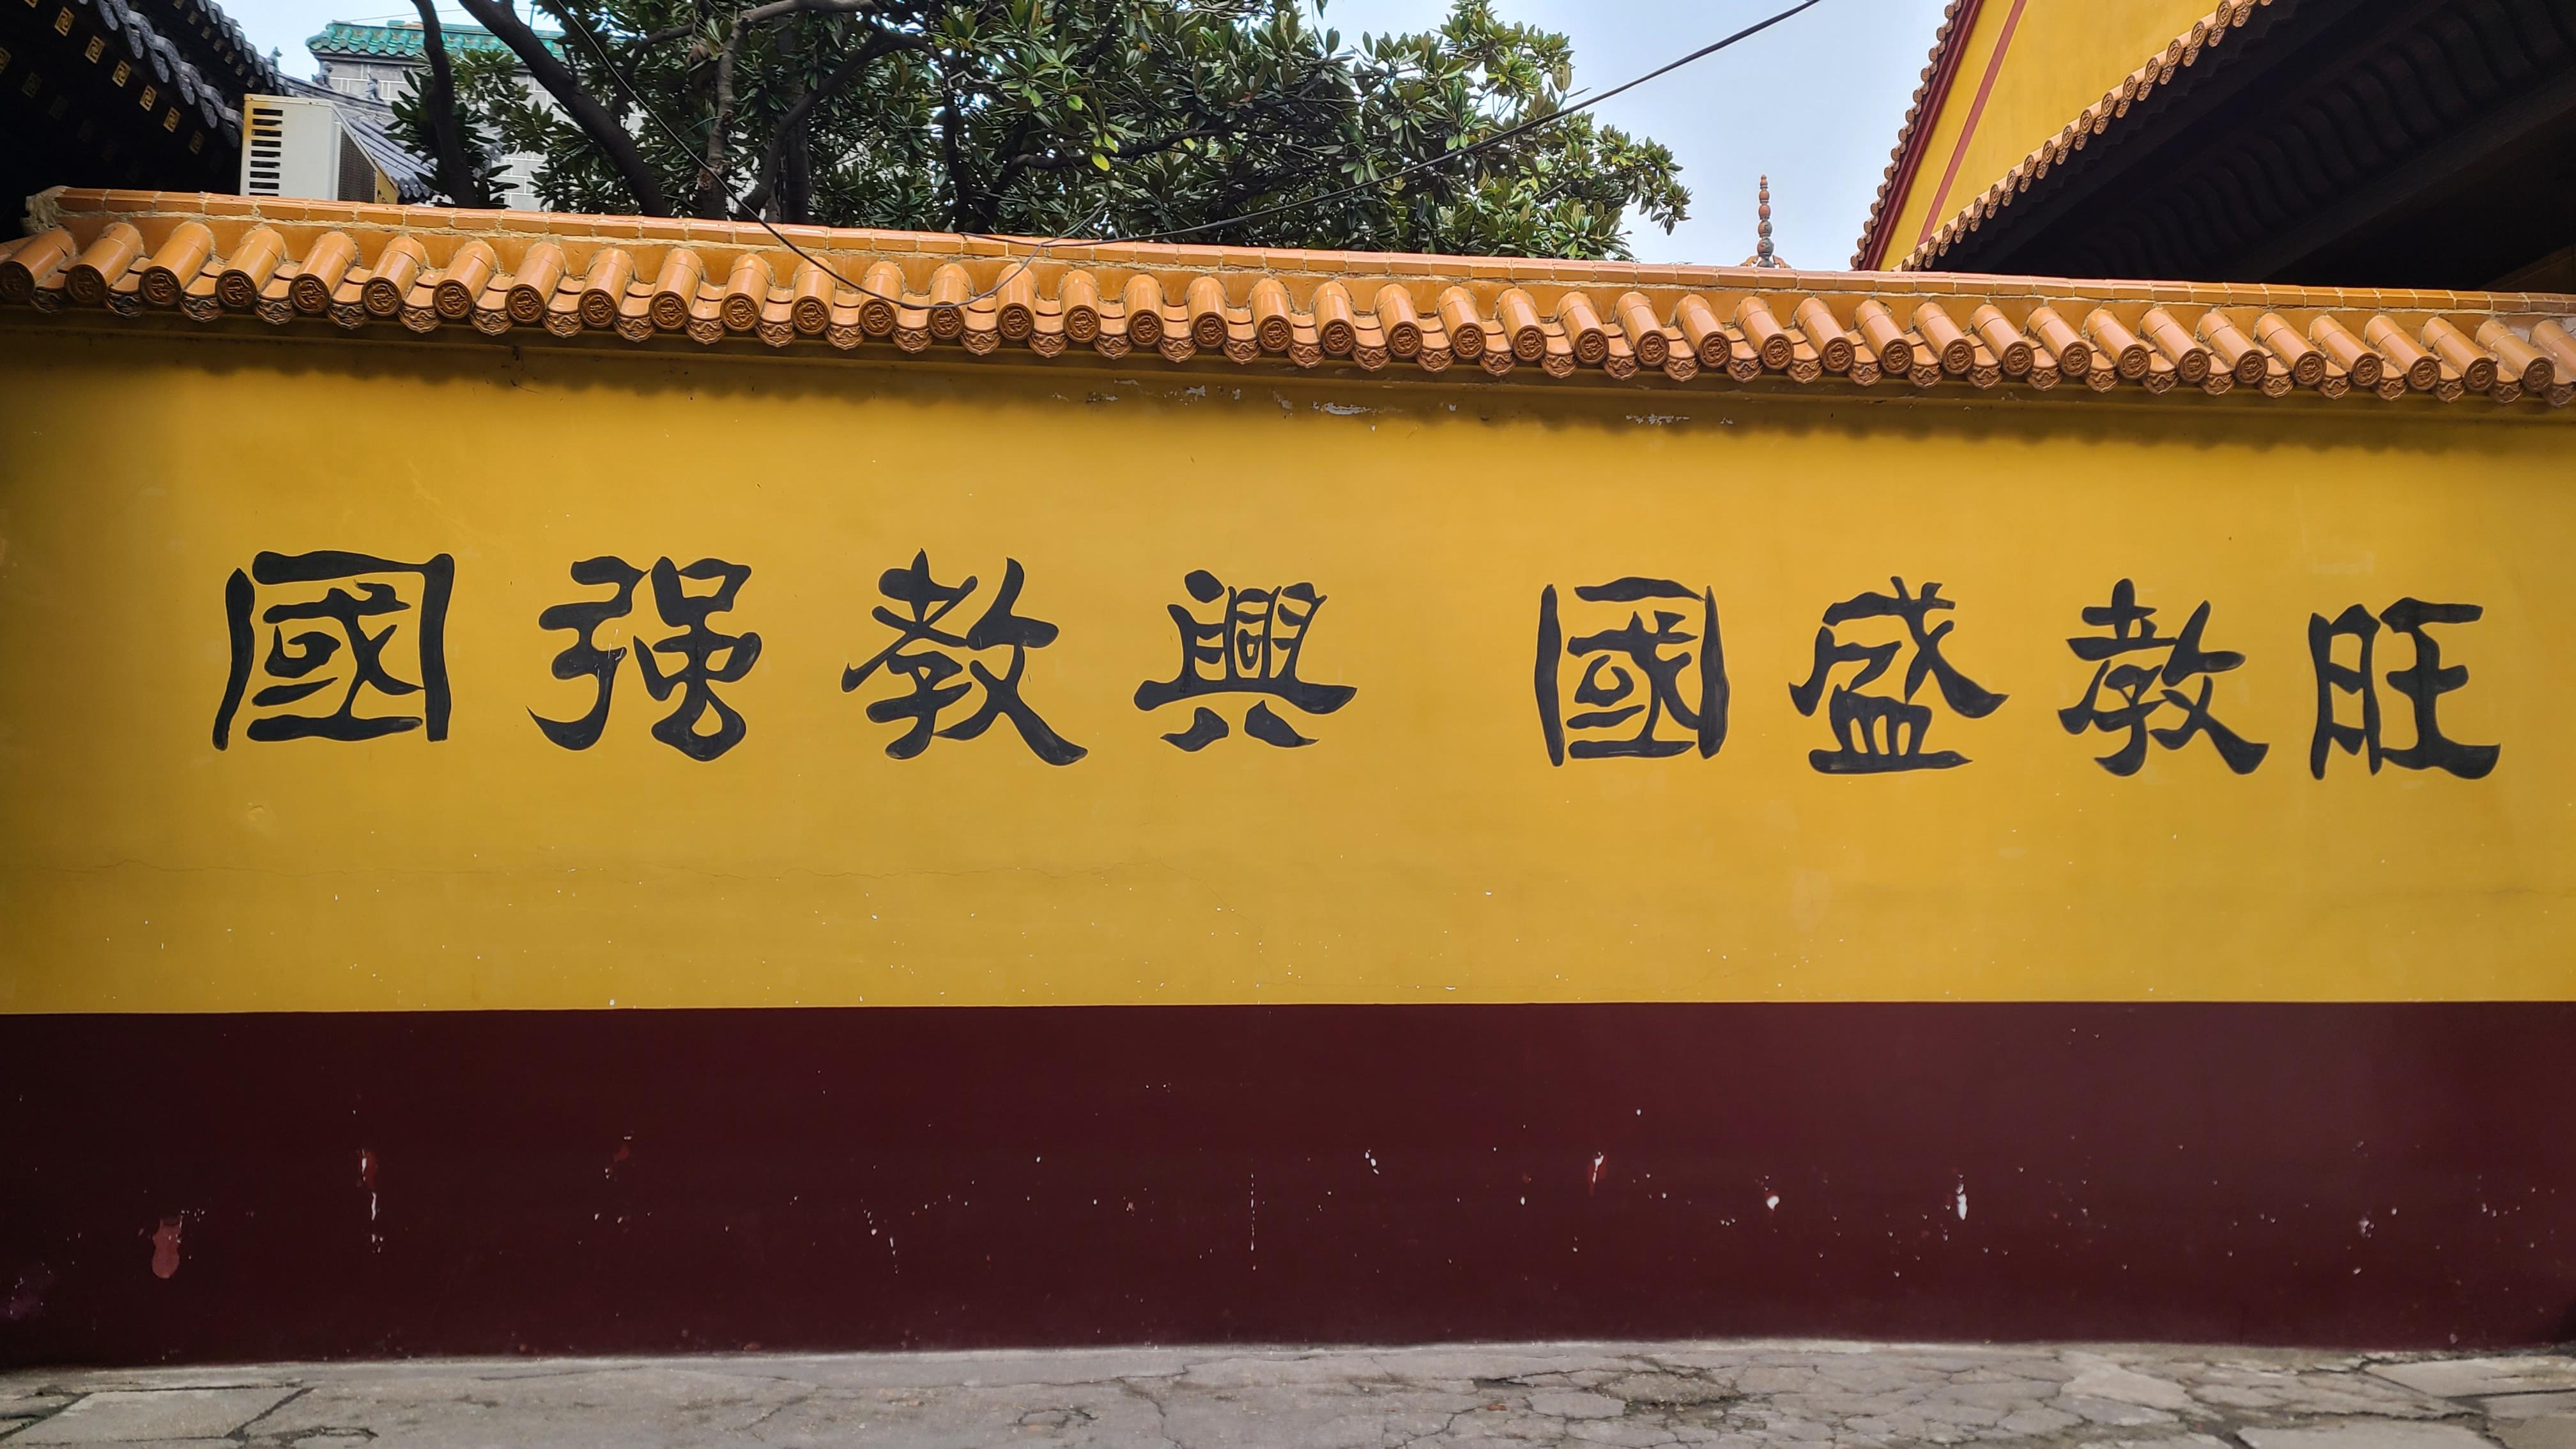 國强教興 國盛教旺